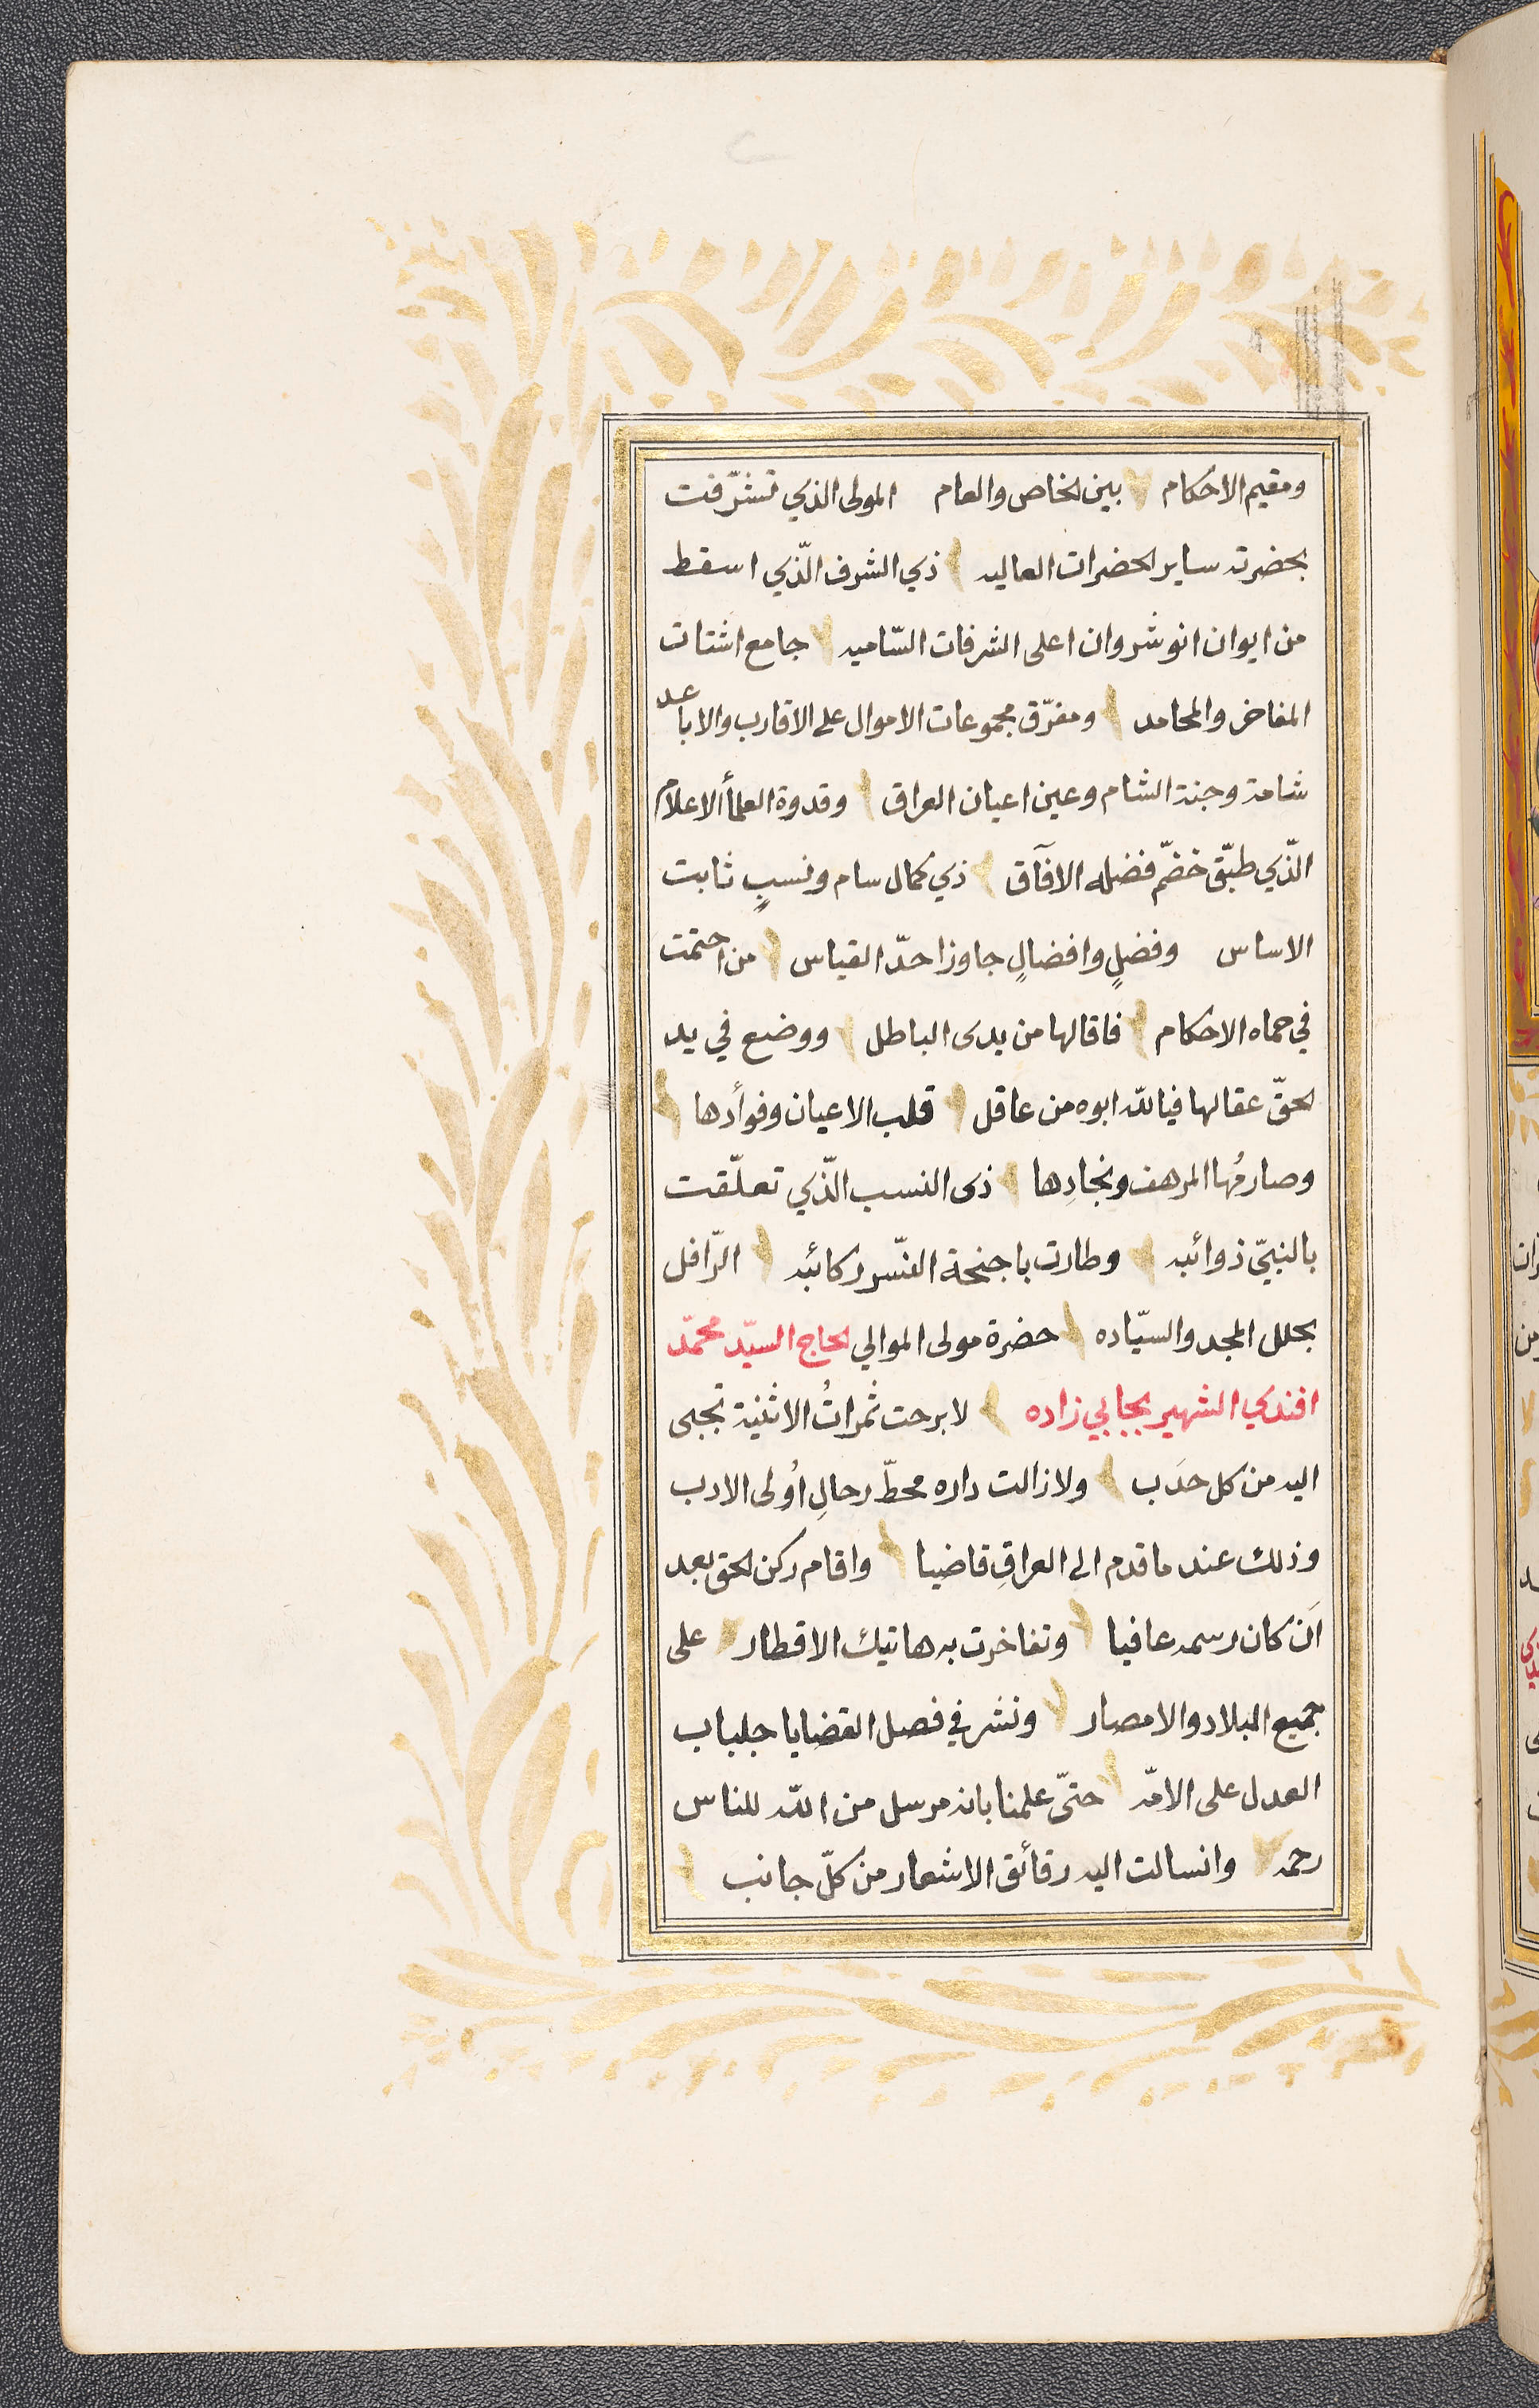 ومقيم الاحكام بين الخاص والعام المولى الذي تشرّفت
بحضرته ساير الحضرات العاليه ذي الشرف الّذي اسقط
من ايوان انوشروان اعلى الشرفات السّاميه جامع اشتات
المفاخر والمحامد ومفرّق مجموعات الاموال على الاقارب والاباعد
شامة وجنة الشام وعين اعيان العراق وقدوة العلمأ الاعلام
الّذي طبّق خضمّ فضله الآفاق ذي كمال سام ونسبٍ ثابت
الاساس وفضلٍ وافضالٍ جاوزا حدّ القياس من احتمت
في حماه الاحكام فاقالها من يدى الباطل ووضع في يد
الحقّ عقالها فيالله ابوه من عاقل قلب الاعيان وفوأدها
وصارمُها المرهف ونجادِها ذى النسب الّذي تعلّقت
بالنبيّ ذوائبه وطارت باجنحة النّسر ركائبه الرّافل
بحلل المجد والسيّاده حضرة مولى الموالي الحاج السيّد محمّد
افندي الشهير بجابي زاده لا برحت ثمراتُ الاثنية تجبى
اليه من كل حدَب ولا زالت داره محطّ رحالِ اُولى الادب
وذلك عند ما قدم الى العراقِ قاضيا واقام ركن الحق بعد
اَن كان رسمه عافيا وتفاخرت به هاتيك الاقطار على
جميع البلاد والامصار ونشر في فصل القضايا جلباب
العدل على الامّه حتىّ علمنا بانه مرسل من الله للناس
رحمه وانسالت اليه رقأئق الاشعار من كلّ جانب